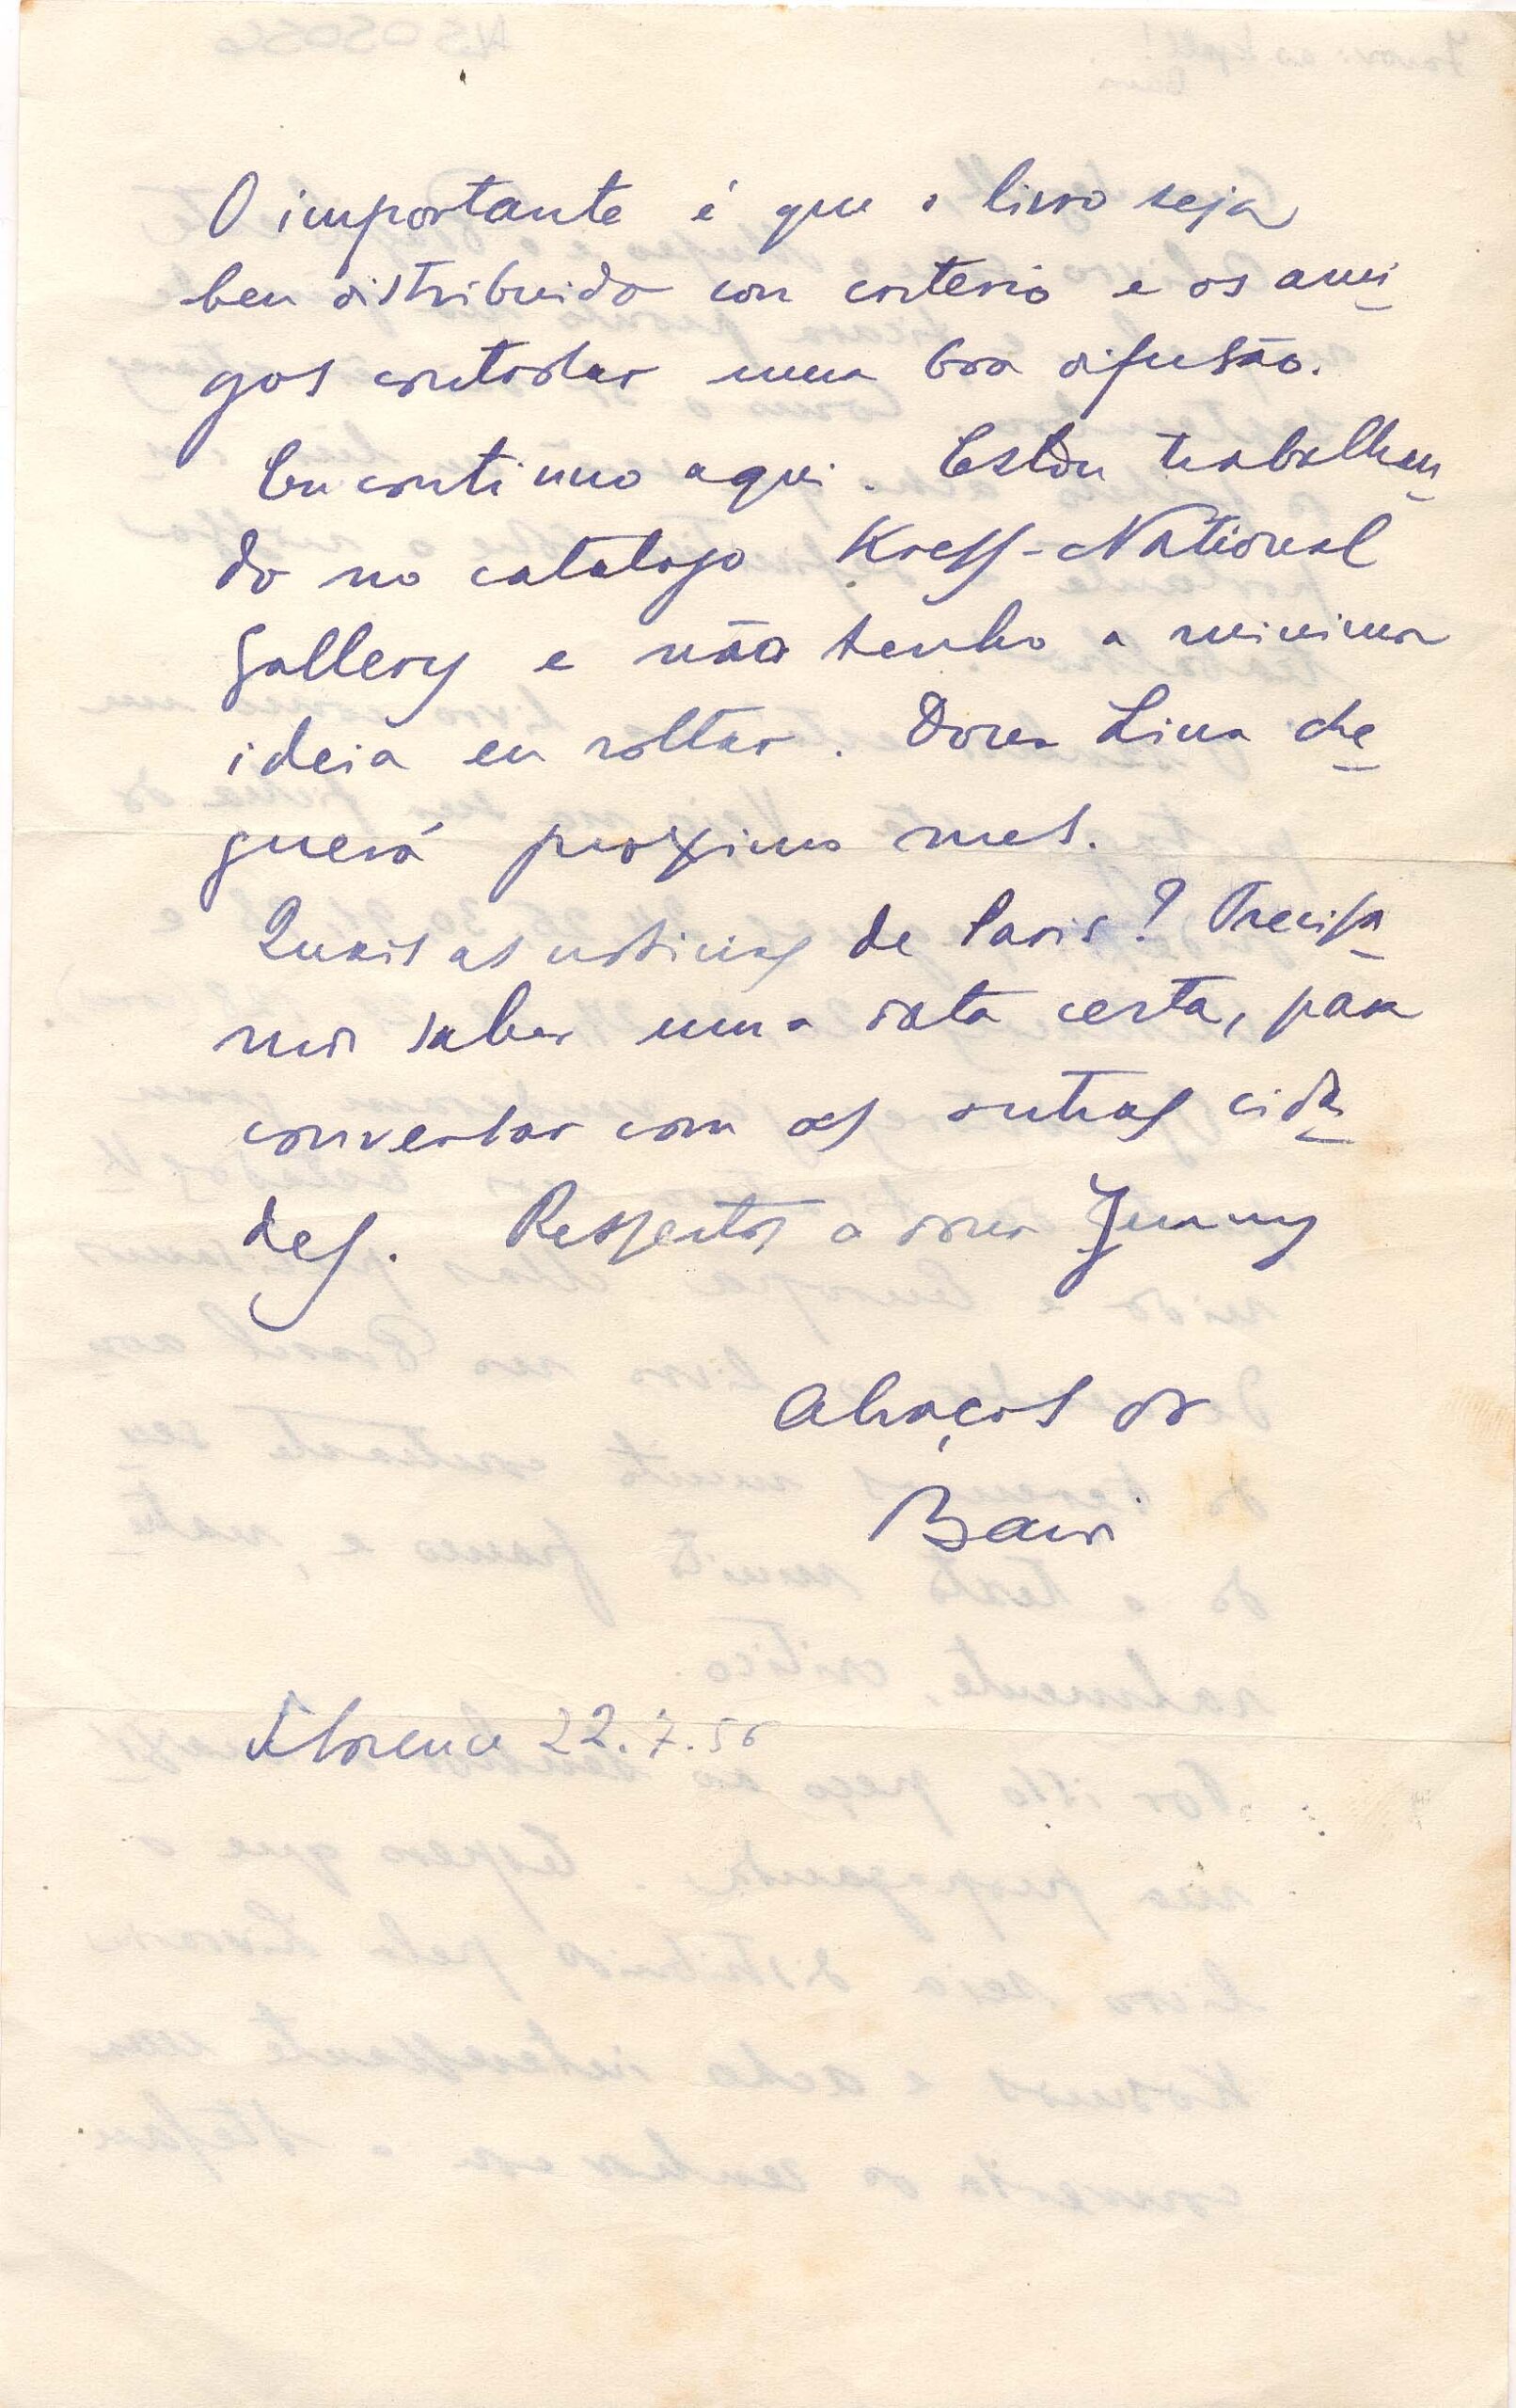 O importante é que o livro seja
ben distribuido con criterio e os ami
gos controlar uma boa difusão.
Eu continuo aqui. Estou trabalhan
do no catalogo Kress-National
Gallery e não tenho a minima
ideia en voltar. Dona Lina che
guerá proximo mes.
Quais as noticias de Paris? Precisa
mos saber uma data certa, para
conversar com as outras cida
des. Respeitos a dona Jenny
Abraços do
Bardi
Florence 22.7.56